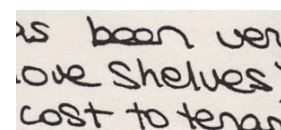 as been ver
ove shelves
cost to tenan